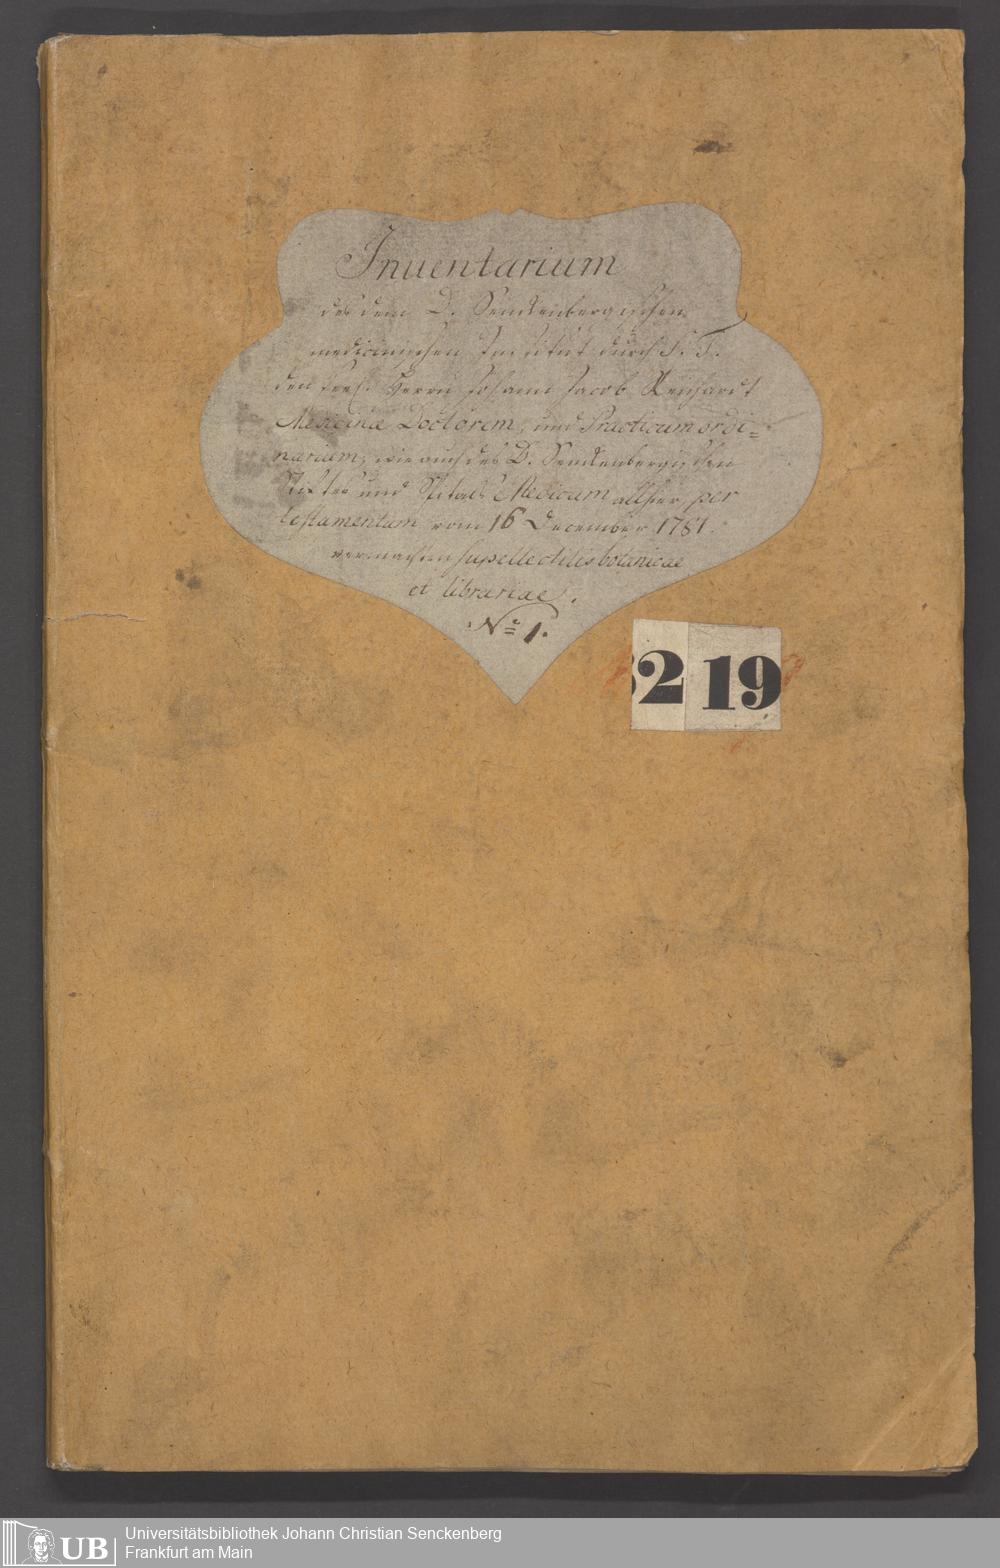 Inuentarium
des dem D. Senckenbergischen
medicinischen Institut durch S. T.
den Herrn Johann Jacob Reichardt
Medicinæ Doctorem, und Practicum ordi=
narium, wie auch des D. Senckenbergischen
Stiftes und Spitals Medicum allhier per
testamentum vom 16 December 1781.
vermachten supellectilis botanicae
et librariae.
No. 1.
2 19
UB
Universitätsbibliothek Johann Christian Senckenberg
Frankfurt am Main